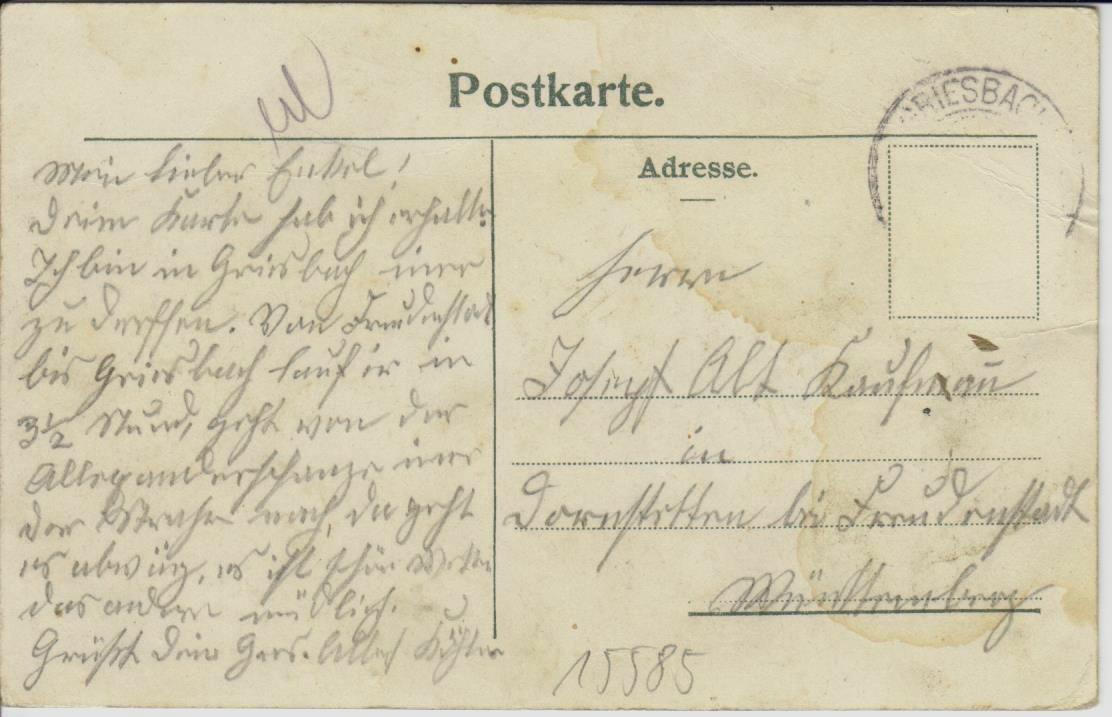 Postkarte.
GRIESBACH
Adresse.
Mein lieber Enkel!
Deine Karte hab ich erhalten
Ich bin in Griesbach
zu . Von Freudenstadt
bis Griesbach lauf ir in
3½ Stund, geht von der
Allexanderschanze
der Strase nach, da geht
es abwärz, es ist schön Wetter
das andere mündlich.
Grüßt Dein
Herrn
Joseph Alt Kaufmann
in
Dornstetten bei Freudenstadt
Württemberg
15585